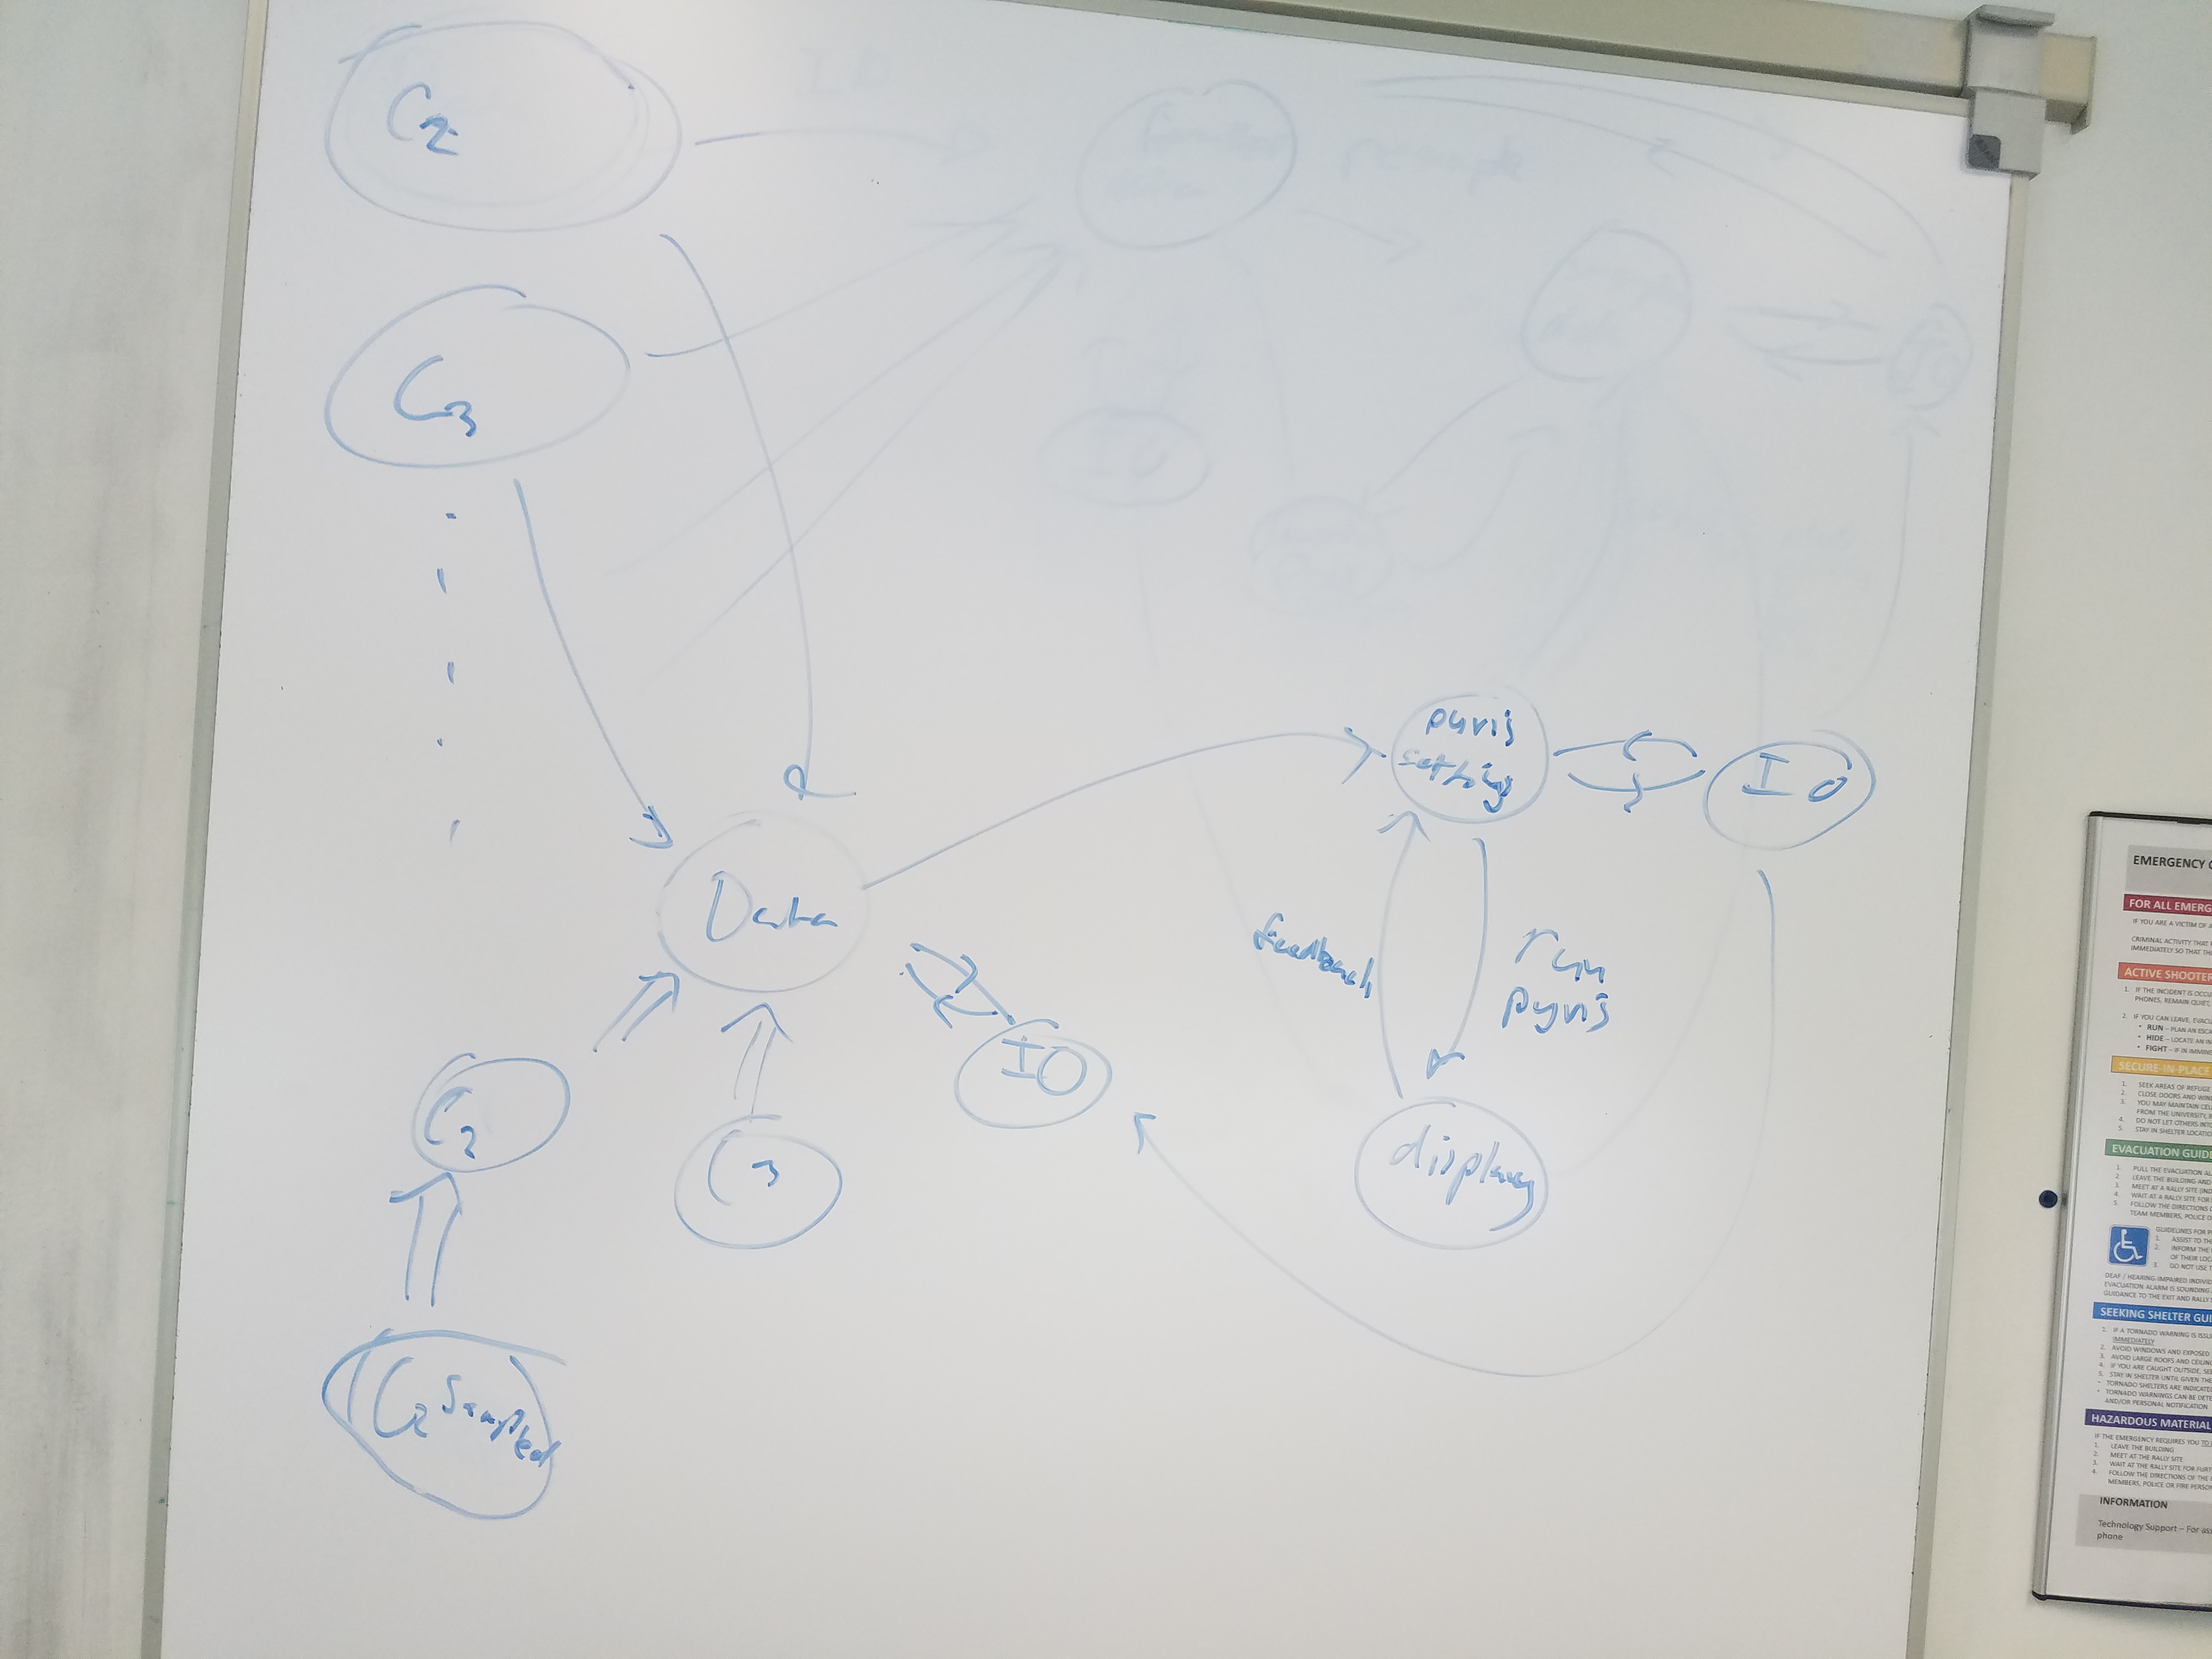 C2
C3
IO
pyvis
setting
IO
Data
feedback
run
pyvis
IO
C2
C3
display
C2 Sampled
EMERGENCY
FOR ALL EMERG
IF YOU ARE A VICTIM OF A
CRIMINAL ACTIVITY THAT
IMMEDIATELY SO THAT THE
ACTIVE SHOOTER
1. IF THE INCIDENT IS OCCU
PHONES, REMAIN QUIET,
2. IF YOU CAN LEAVE, EVACU
• RUN – PLAN AN ESCA
• HIDE – LOCATE AN IN
• FIGHT – IF IN IMMINE
SECURE-IN-PLACE
1. SEEK AREAS OF REFUGE
2. CLOSE DOORS AND WIND
3. YOU MAY MAINTAIN CEL
FROM THE UNIVERSITY,
4. DO NOT LET OTHERS INTO
5. STAY IN SHELTER LOCATIO
EVACUATION GUIDE
1. PULL THE EVACUATION AL
2. LEAVE THE BUILDING AND
3. MEET AT A RALLY SITE (IND
4. WAIT AT A RALLY SITE FOR
5. FOLLOW THE DIRECTIONS O
TEAM MEMBERS, POLICE O
GUIDELINES FOR P
1. ASSIST TO TH
2. INFORM THE
OF THEIR LOC
3. DO NOT USE T
DEAF / HEARING-IMPAIRED INDIVID
EVACUATION ALARM IS SOUNDING
GUIDANCE TO THE EXIT AND RALLY
SEEKING SHELTER GUI
1. IF A TORNADO WARNING IS ISSU
IMMEDIATELY
2. AVOID WINDOWS AND EXPOSED
3. AVOID LARGE ROOFS AND CEILIN
4. IF YOU ARE CAUGHT OUTSIDE, SEE
5. STAY IN SHELTER UNTIL GIVEN THE
• TORNADO SHELTERS ARE INDICATED
• TORNADO WARNINGS CAN BE DETE
AND/OR PERSONAL NOTIFICATION
HAZARDOUS MATERIAL
IF THE EMERGENCY REQUIRES YOU TO
1. LEAVE THE BUILDING
2. MEET AT THE RALLY SITE
3. WAIT AT THE RALLY SITE FOR FURT
4. FOLLOW THE DIRECTIONS OF THE
MEMBERS, POLICE OR FIRE PERSON
INFORMATION
Technology Support – For ass
phone